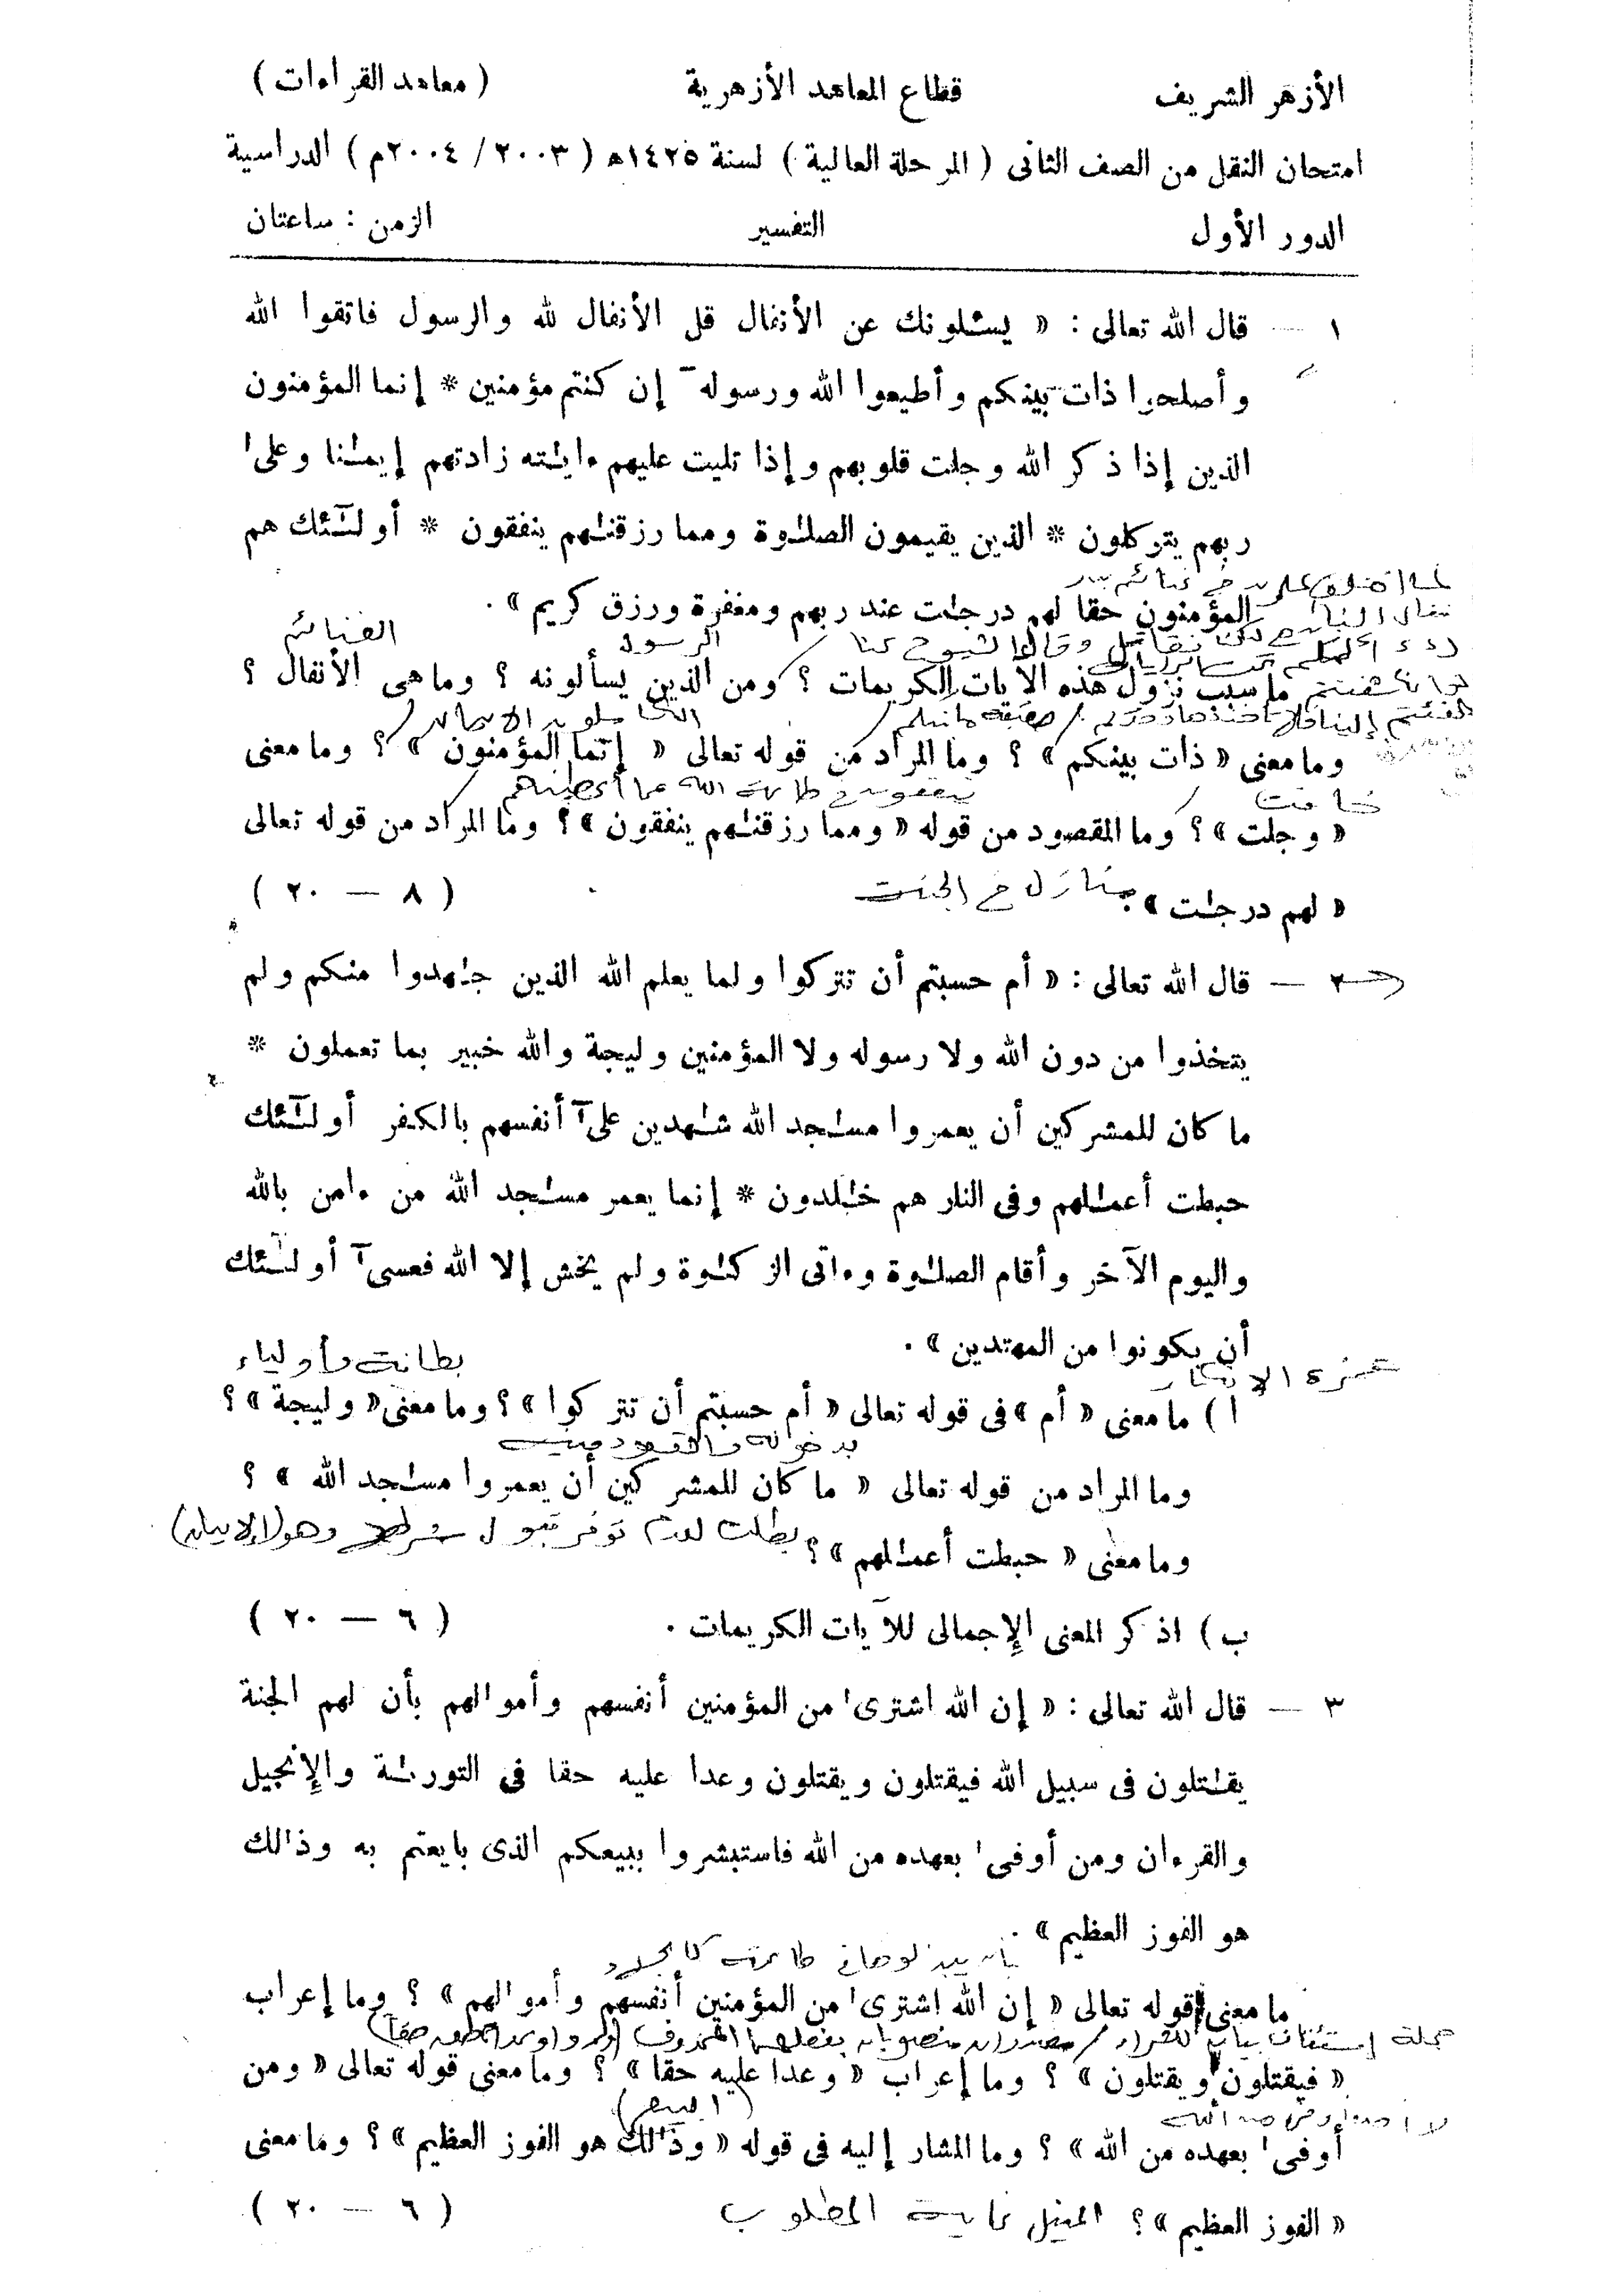 الأزهر الشريف قطاع المعاهد الأزهرية ( معاهد القراءات )
امتحان النقل من الصف الثانى ( المرحلة العالية ) لسنة ١٤٢٥ه ( ٢٠٠٣ / ٢٠٠٤م ) الدراسية
الدور الأول التفسير الزمن : ساعتان
١ — قال الله تعالى : « يسـٔلونك عن الأنفال قل الأنفال لله والرسول فاتقوا الله
وأصلحوا ذات بينكم وأطيعوا الله ورسوله~ إن كنتم مؤمنين * إنما المؤمنون
الذين إذا ذكر الله وجلت قلوبهم وإذا تليت عليهم ءايـٰته زادتهم إيمـٰنا وعلىٰ
ربهم يتوكلون * الذين يقيمون الصلـٰوة ومما رزقنـٰهم ينفقون * أولـٰٓئك هم
المؤمنون حقا لهم درجـٰت عند ربهم ومغفرة ورزق كريم » .
الرسول الغنائم
ما سبب نزول هذه الآيات الكريمات ؟ ومن الذين يسألونه ؟ وما هى الأنفال ؟
حقيقة ما بينكم / الكاملون الإيمان /
وما معنى « ذات بينكم » ؟ وما المراد من قوله تعالى « إنما المؤمنون » ؟ وما معنى
خافت / ينفقون فى طاعة الله مما أعطيناهم
« وجلت » ؟ وما المقصود من قوله « ومما رزقنـٰهم ينفقون » ؟ وما المراد من قوله تعالى
« لهم درجـٰت » . منازل فى الجنة ( ٨ — ٢٠ )
٢ — قال الله تعالى : « أم حسبتم أن تتركوا ولما يعلم الله الذين جـٰهدوا منكم ولم
يتخذوا من دون الله ولا رسوله ولا المؤمنين وليجة والله خبير بما تعملون *
ما كان للمشركين أن يعمروا مسـٰجد الله شـٰهدين علىٰٓ أنفسهم بالكفر أولـٰٓئك
حبطت أعمـٰلهم وفى النار هم خـٰلدون * إنما يعمر مسـٰجد الله من ءامن بالله
واليوم الآخر وأقام الصلـٰوة وءاتى الزكـٰوة ولم يخش إلا الله فعسىٰٓ أولـٰٓئك
أن يكونوا من المهتدين » .
همزة الإنكار بطانة وأولياء
ا ) ما معنى « أم » فى قوله تعالى « أم حسبتم أن تتركوا » ؟ وما معنى « وليجة » ؟
بدخوله والقعود فيه
وما المراد من قوله تعالى « ما كان للمشركين أن يعمروا مسـٰجد الله » ؟
وما معنى « حبطت أعمـٰلهم » ؟ بطلت لعدم توفر قبول شرطها وهو (الإيمان)
ب ) اذكر المعنى الإجمالى للآيات الكريمات . ( ٦ — ٢٠ )
٣ — قال الله تعالى : « إن الله اشترىٰ من المؤمنين أنفسهم وأموٰلهم بأن لهم الجنة
يقـٰتلون فى سبيل الله فيقتلون ويقتلون وعدا عليه حقا فى التورىٰة والإنجيل
والقرءان ومن أوفىٰ بعهده من الله فاستبشروا ببيعكم الذى بايعتم به وذٰلك
هو الفوز العظيم » .
بأن يبذلوها فى طاعته كالجهاد
ما معنى قوله تعالى « إن الله اشترىٰ من المؤمنين أنفسهم وأموٰلهم » ؟ وما إعراب
جملة إستئناف بيان للشراء / مصدران منصوبان بفعلهما المحذوف
« فيقتلون ويقتلون » ؟ وما إعراب « وعدا عليه حقا » ؟ وما معنى قوله تعالى « ومن
لا أحد أوفى من الله (البيع)
أوفىٰ بعهده من الله » ؟ وما المشار إليه فى قوله « وذٰلك هو الفوز العظيم » ؟ وما معنى
« الفوز العظيم » ؟ المنيل غاية المطلوب ( ٦ — ٢٠ )